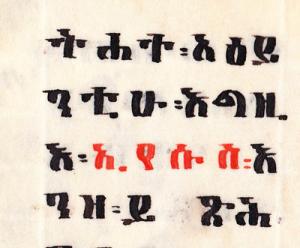 ትሕተ፡አዕይ
ንቲሁ፡እግዚ
እ፡ኢየሱስ፡እ
ንዘ፡ይ ጽሕ